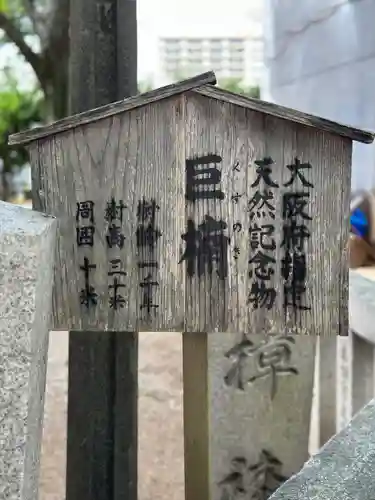 大阪府指定
天然記念物
くすのき
巨楠
樹齢一千年
樹高三十米
周囲十米
樟